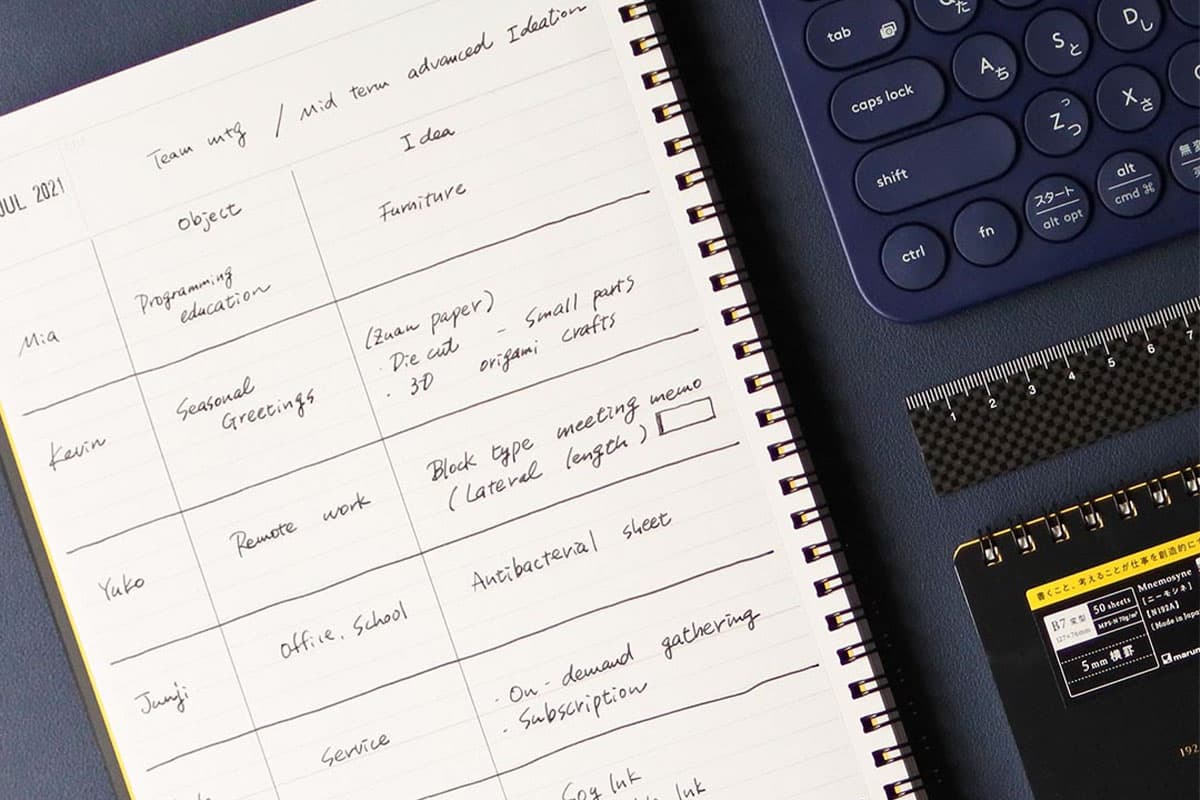 JUL 2021
Team mtg / Mid term advanced Ideation
Object
Idea
Mia
Programming
education
Furniture
Kevin
Seasonal
Greetings
(Zuan paper)
・Die cut - Small parts
・3D origami crafts
Yuko
Remote work
Block type meeting memo
(Lateral length)
Junji
Office, School
Antibacterial sheet
Service
・On-demand gathering
・Subscription
Soy Ink
Ink
tab
caps lock
A ち
S と
D し
shift
Z つ
X さ
ctrl
fn
スタート
alt opt
alt
cmd ⌘
1 2 3 4 5 6 7
書くこと、考えることが仕事を創造的に
B7 変型
50 sheets
Mnemosyne
[ニーモシネ]
[N193A]
5mm 横罫